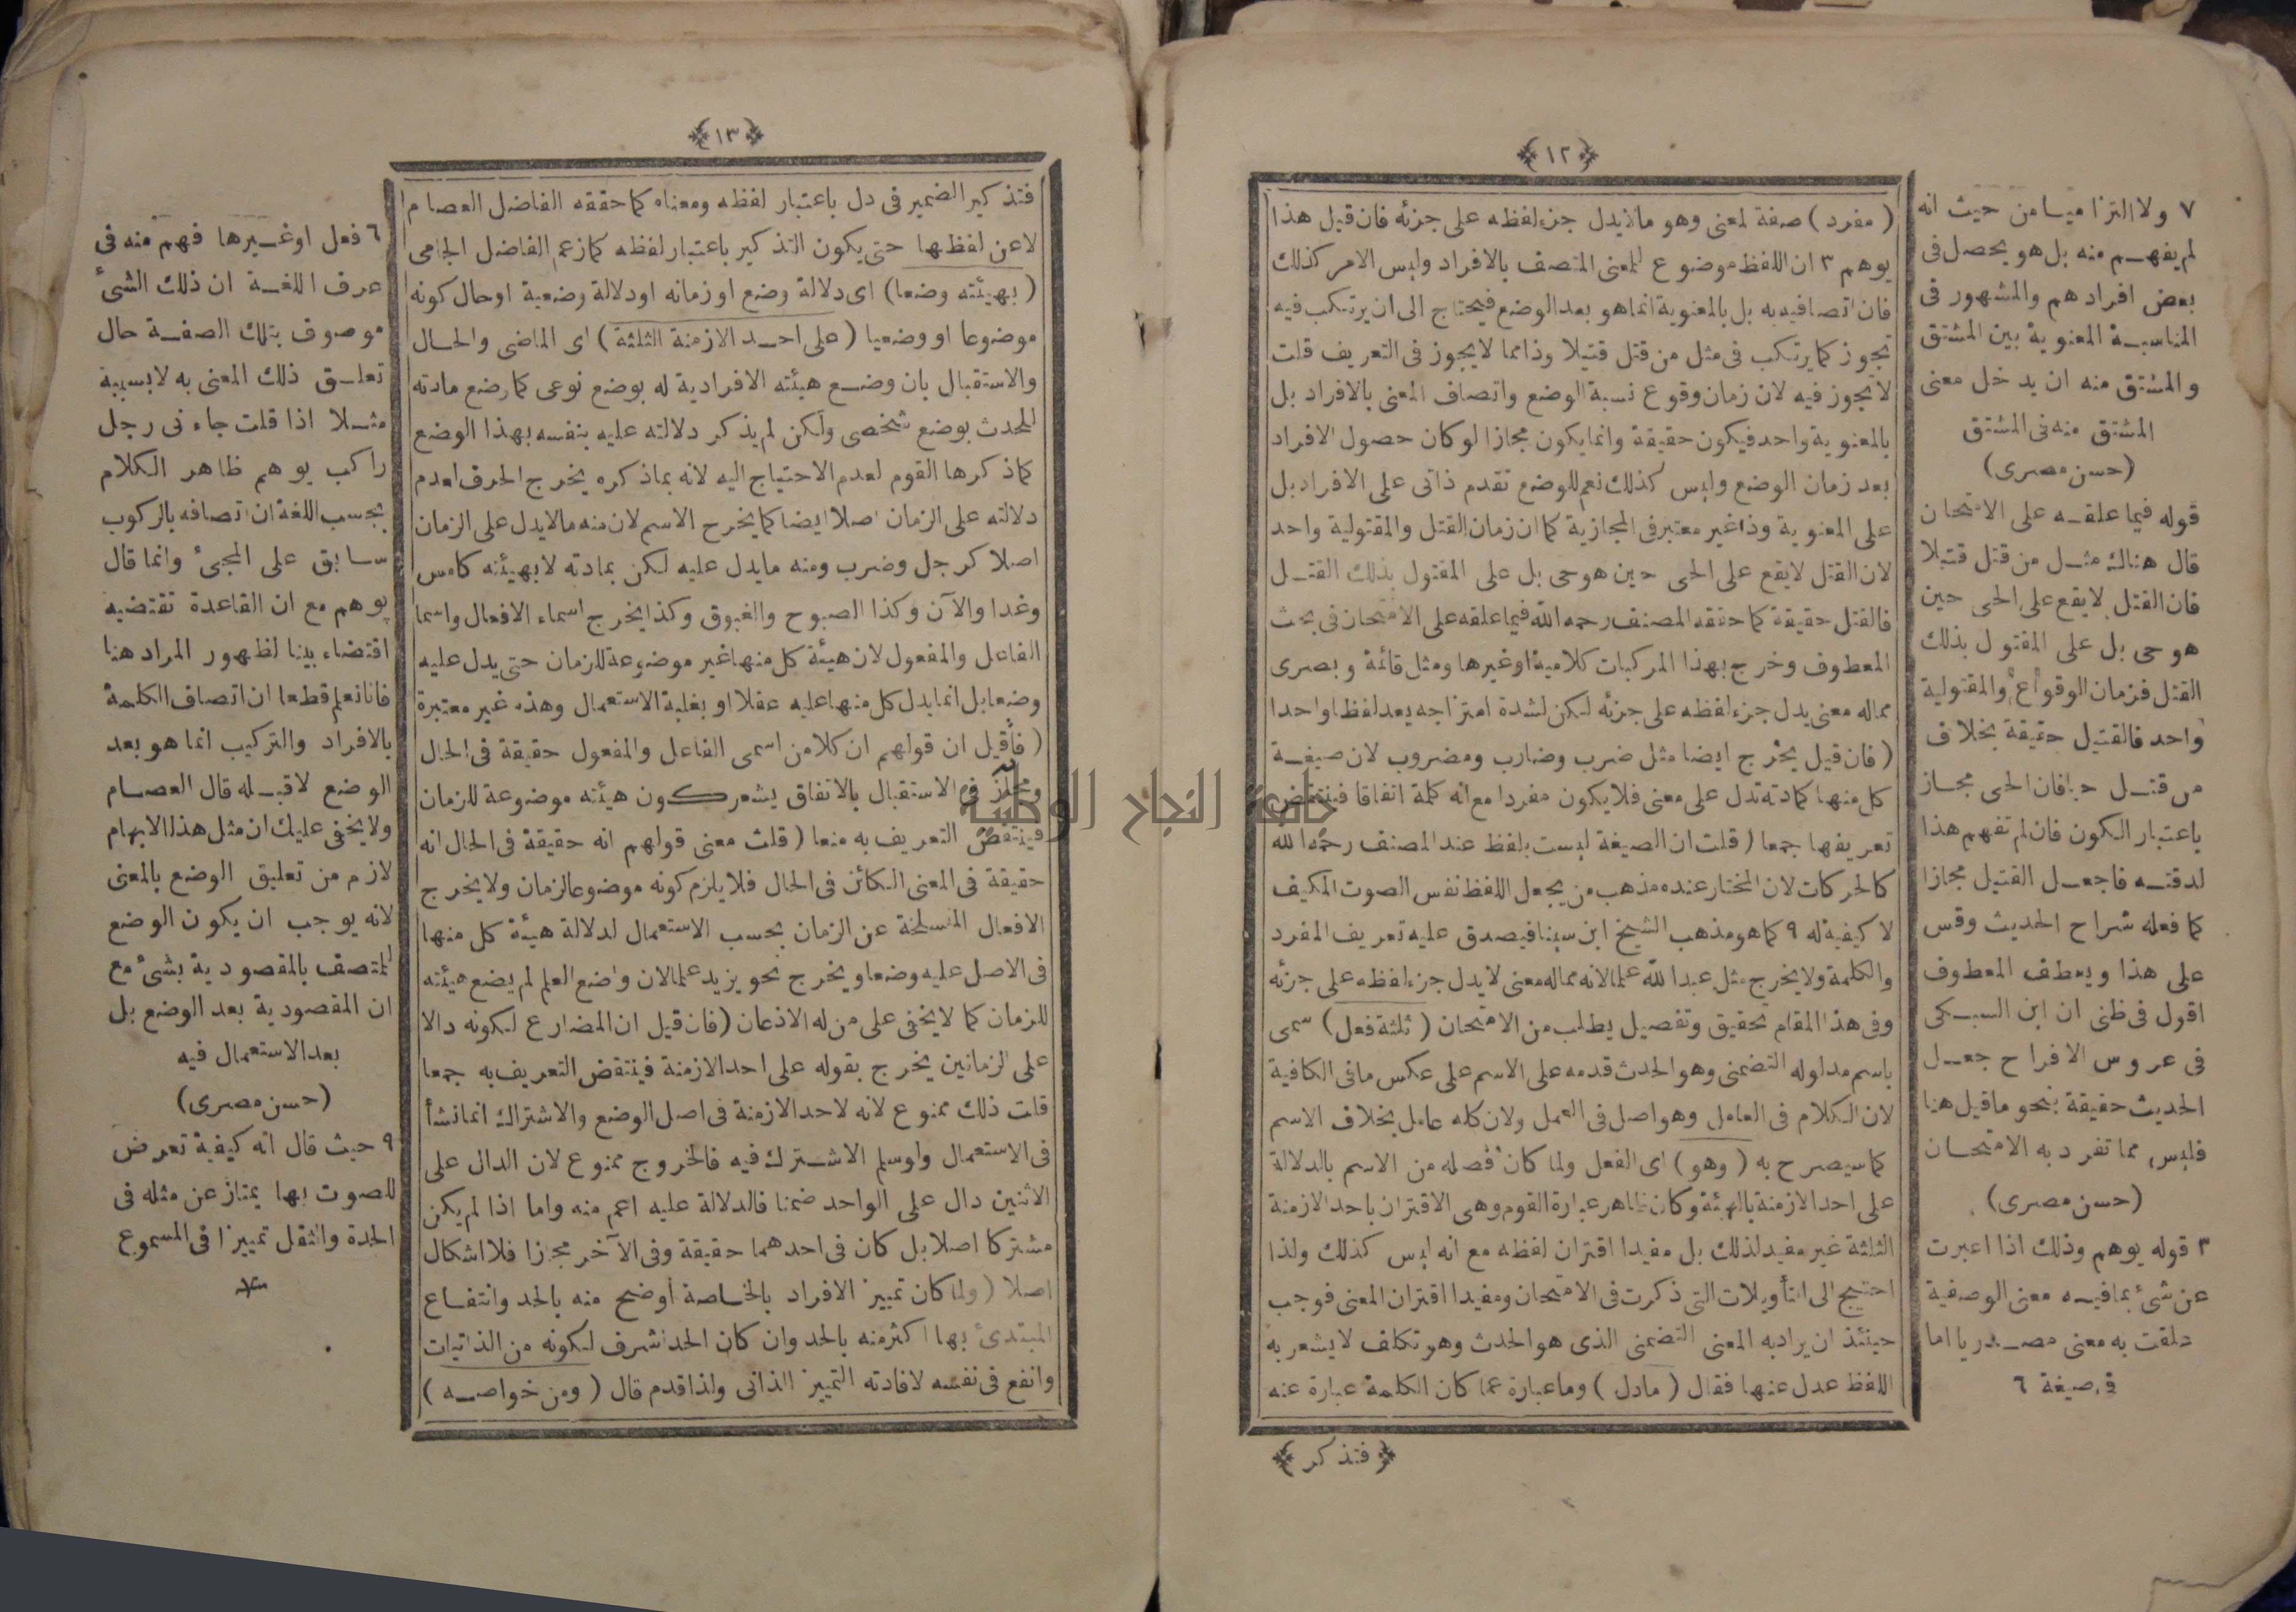 ﴿١٢﴾
( مفرد ) صفة لمعنى وهو مالايدل جزء لفظه على جزئه فان قيل هذا
يوهم ٣ ان اللفظ موضوع للمعنى المتصف بالافراد وليس الامر كذلك
فان اتصافيه به بل بالمعنوية انما هو بعد الوضع فيحتاج الى ان يرتكب فيه
تجوز كما يرتكب فى مثل من قتل قتيلا وذا مما لا يجوز فى التعريف قلت
لا تجوز فيه لان زمان وقوع نسبة الوضع واتصاف المعنى بالافراد بل
بالمعنوية واحد فيكون حقيقة وانما يكون مجازا لو كان حصول الافراد
بعد زمان الوضع وليس كذلك نعم للوضع تقدم ذاتى على الافراد بل
على المعنوية وذا غير معتبر فى المجازية كما ان زمان القتل والمقتولية واحد
لان القتل لايقع على الحى حين هو حى بل على المقتول بذلك القتــل
فالقتل حقيقة كما حققه المصنف رحمه الله فيما علقه على الامتحان فى بحث
المعطوف وخرج بهذا المركبات كلامية او غيرها ومثل قائمة وبصرى
مماله معنى يدل جزء لفظه على جزئه لكن لشدة امتزاجه يعد لفظا واحدا
( فان قيل يخرج ايضا مثل ضرب وضارب ومضروب لان صيغــة
كل منها كمادته تدل على معنى فلا يكون مفردا مع انه كلمة اتفاقا فينتقض
تعريفها جمعا ( قلت ان الصيغة ليست بلفظ عند المصنف رحمه الله
كالحركات لان المختار عنده مذهب من يجعل اللفظ نفس الصوت المكيف
لا كيفية له ٩ كما هو مذهب الشيخ ابن سينا فيصدق عليه تعريف المفرد
والكلمة ولا يخرج مثل عبد الله علما لانه مماله معنى لا يدل جزء لفظه على جزئه
وفى هذا المقام تحقيق وتفصيل يطلب من الامتحان ( ثلثة فعل ) سمى
باسم مدلوله التضمنى وهو الحدث قدمه على الاسم على عكس ما فى الكافية
لان الكلام فى العامل وهو اصل فى العمل ولان كله عامل بخلاف الاسم
كما سيصرح به ( وهو ) اى الفعل ولما كان فصله من الاسم بالدلالة
على احد الازمنة بالهيئة وكان ظاهر عبارة القوم وهى الاقتران باحد الازمنة
الثلثة غير مفيد لذلك بل مفيدا اقتران لفظه مع انه ليس كذلك ولذا
احتيج الى التأويلات التى ذكرت فى الامتحان ومفيدا اقتران المعنى فوجب
حينئذ ان يراد به المعنى التضمنى الذى هو الحدث وهو تكلف لا يشعر به
اللفظ عدل عنها فقال ( مادل ) وما عبارة عما كان الكلمة عبارة عنه
﴿ فتذكر ﴾
٧ ولا التزاميا من حيث انه
لم يفهــم منه بل هو يحصل فى
بعض افرادهم والمشهور فى
المناسبــة المعنوية بين المشتق
والمشتق منه ان يدخل معنى
المشتق منه فى المشتق
(حسن مصرى)
قوله فيما علقــه على الامتحان
قال هناك مثــل من قتل قتيلا
فان القتل لا يقع على الحى حين
هو حى بل على المقتول بذلك
القتل فزمان الوقوع والمقتولية
واحد فالقتيل حقيقة بخلاف
من قتــل حيا فان الحى مجــاز
باعتبار الكون فان لم تفهم هذا
لدقتــه فاجعــل القتيل مجازا
كما فعله شراح الحديث وقس
على هذا ويعطف المعطوف
اقول فى ظنى ان ابن السبــكى
فى عروس الافراح جعــل
الحديث حقيقة بنحو ما قيل هنا
فليس مما تفرد به الامتحــان
(حسن مصرى)
٣ قوله يوهم وذلك اذا اعبرت
عن شئ بما فيــه معنى الوصفية
علقت به معنى مصــدريا اما
فى صيغة ٦
﴿١٣﴾
فتذكير الضمير فى دل باعتبار لفظه ومعناه كما حققه الفاضل العصام
لاعن لفظها حتى يكون التذكير باعتبار لفظه كما زعم الفاضل الجامى
( بهيئته وضعا ) اى دلالة وضع او زمانه او دلالة وضعية او حال كونه
موضوعا او وضعيا ( على احــد الازمنة الثلثة ) اى الماضى والحــال
والاستقبال بان وضــع هيئته الافرادية له بوضع نوعى كما وضع مادته
للحدث بوضع شخصى ولكن لم يذكر دلالته عليه بنفسه بهذا الوضع
كما ذكرها القوم لعدم الاحتياج اليه لانه بما ذكره يخرج الحرف لعدم
دلالته على الزمان اصلا ايضا كما يخرج الاسم لان منه مالايدل على الزمان
اصلا كرجل وضرب ومنه ما يدل عليه لكن بمادته لا بهيئته كامس
وغدا والآن وكذا الصبوح والغبوق وكذا يخرج اسماء الافعال واسما
الفاعل والمفعول لان هيئة كل منها غير موضوعة للزمان حتى يدل عليه
وضعا بل انما يدل كل منها عليه عقلا او بغلبة الاستعمال وهذه غير معتبرة
( فأن قيل ان قولهم ان كلا من اسمى الفاعل والمفعول حقيقة فى الحال
ومجاز فى الاستقبال بالاتفاق يشعر بكون هيئته موضوعة للزمان
فينتقض التعريف به منعا ( قلت معنى قولهم انه حقيقة فى الحال انه
حقيقة فى المعنى الكائن فى الحال فلا يلزم كونه موضوعا للزمان ولا يخرج
الافعال المنسلخة عن الزمان بحسب الاستعمال لدلالة هيئة كل منها
فى الاصل عليه وضعا ويخرج نحو يزيد علما لان واضع العلم لم يضع هيئته
للزمان كما لا يخفى على من له الاذعان ( فان قيل ان المضارع لكونه دالا
على الزمانين يخرج بقوله على احد الازمنة فينتقض التعريف به جمعا
قلت ذلك ممنوع لانه لاحد الازمنة فى اصل الوضع والاشتراك انما نشأ
فى الاستعمال ولو سلم الاشــتراك فيه فالخروج ممنوع لان الدال على
الاثنين دال على الواحد ضمنا فالدلالة عليه اعم منه واما اذا لم يكن
مشتركا اصلا بل كان فى احدهما حقيقة وفى الآخر مجازا فلا اشكال
اصلا ( ولما كان تمييز الافراد بالخاصة أوضح منه بالحد وانتفــاع
المبتدئ بها اكثر منه بالحد وان كان الحد اشرف لكونه من الذاتيات
وانفع فى نفسه لافادته التمييز الذاتى ولذا قدم قال ( ومن خواصــه )
٦ فعل او غــيرها فهم منه فى
عرف اللغــة ان ذلك الشئ
موصوف بتلك الصفــة حال
تعلــق ذلك المعنى به لا بسببه
مثــلا اذا قلت جاءنى رجل
راكب يوهم ظاهر الكلام
بحسب اللغة ان اتصافه بالركوب
ســابق على المجئ وانما قال
يوهم مع ان القاعدة تقتضيه
اقتضاء بينا لظهور المراد هنا
فانا نعلم قطعا ان اتصاف الكلمة
بالافراد والتركيب انما هو بعد
الوضع لا قبــله قال العصــام
ولا يخفى عليك ان مثل هذا الابهام
لازم من تعليق الوضع بالمعنى
لانه يوجب ان يكون الوضع
للمتصف بالمقصودية بشئ مع
ان المقصودية بعد الوضع بل
بعد الاستعمال فيه
(حسن مصرى)
٩ حيث قال انه كيفية تعرض
للصوت بها يمتاز عن مثله فى
الحدة والثقل تمييزا فى المسموع
جامعة النجاح الوطنية